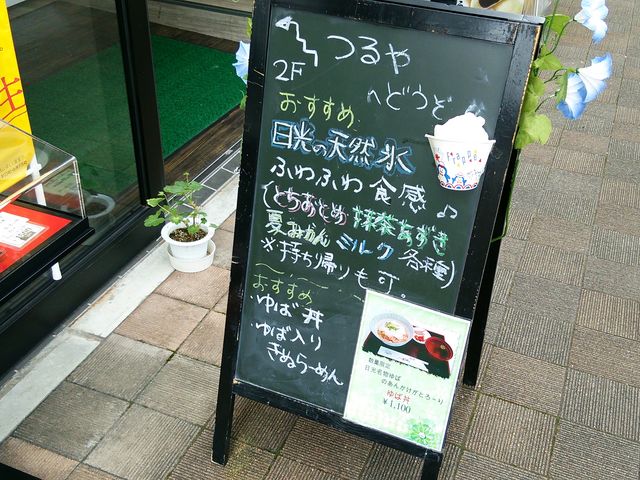 つるや
2F
へどうぞ
おすすめ
日光の天然氷
ふわふわ食感♪
(とちおとめ 抹茶あずき
夏みかん ミルク 各種)
※持ち帰りも可。
おすすめ
・ゆば丼
・ゆば入り
きぬらーめん
数量限定
日光名物ゆば
のあんかけがとろ〜り
ゆば丼
¥1,100